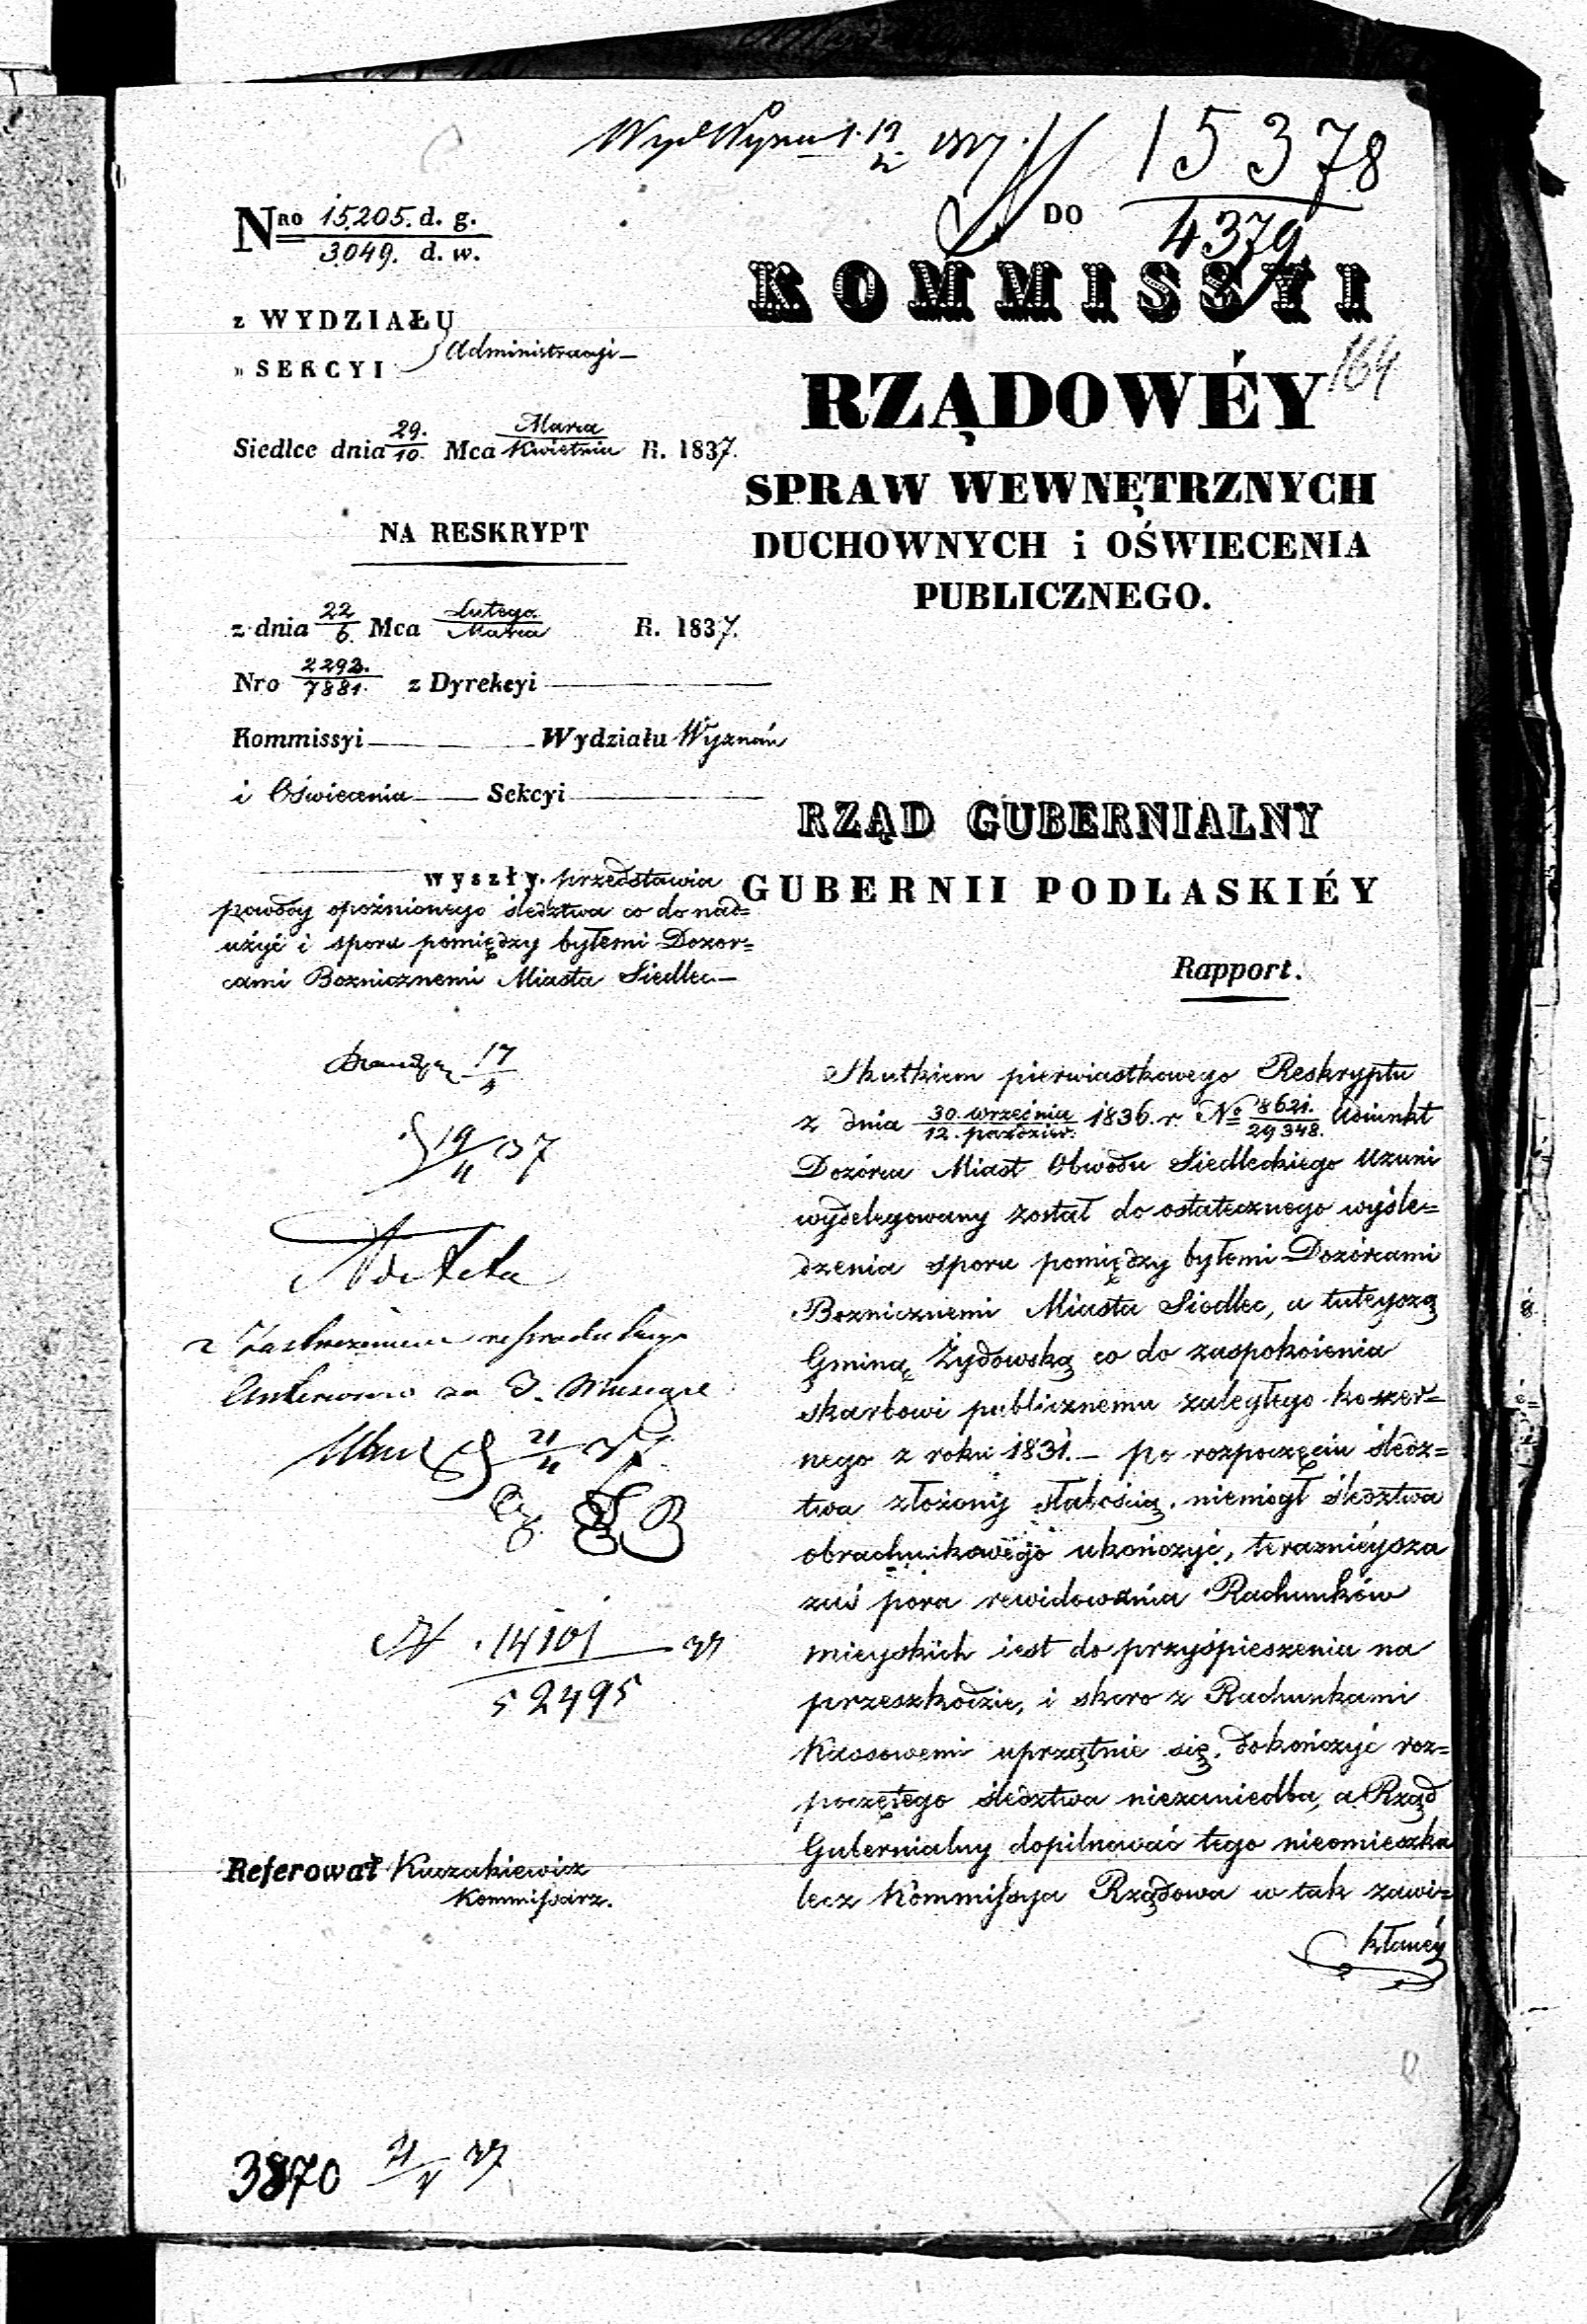 15378
4379
164
Nro 15,205. d. g.
3049. d. w.
z WYDZIAŁU
» SEKCYI Administracyi
Siedlce dnia 29./10. Mca Marca/Kwietnia R. 1837.
NA RESKRYPT
z dnia 22/6. Mca Lutego/Marca R. 1837.
Nro 2293./7881. z Dyrekcyi
Kommissyi Wydziału Wyznań
i Oświecenia Sekcyi
wyszły. przedstawia
powody opoźnionego śledztwa co do nad=
użyć i sporu pomiędzy byłemi Dozor=
cami Boznicznemi Miasta Siedlec
17/4
19/4 37
Ad acta
21/4 37
N 14101 37
52495
Referował Kuczakiewicz
Kommissarz.
3870 21/4 37
DO
KOMMISSYI
RZĄDOWÉY
SPRAW WEWNĘTRZNYCH
DUCHOWNYCH i OŚWIECENIA
PUBLICZNEGO.
RZĄD GUBERNIALNY
GUBERNII PODLASKIÉY
Rapport.
Skutkiem pierwiastkowego Reskryptu
z dnia 30. września/12. paźdźier. 1836. r. No 8621./29348. Adiunkt
Dozórca Miast Obwodu Siedleckiego
wydelegowany został do ostatecznego wyśle=
dzenia sporu pomiędzy byłemi Dozórcami
Boznicznemi Miasta Siedlec, a tuteyszą
Gminą Żydowską co do zaspokoienia
skarbowi publicznemu zaległego koszer=
nego z roku 1831. – po rozpoczęciu śledz=
twa złożony słabością, niemógł śledztwa
obrachunkowego ukończyć, teraznieysza
zaś pora rewidowania Rachunków
mieyskich iest do przyśpieszenia na
przeszkodzie, i skoro z Rachunkami
Kassowemi uprzątnie się, dokończyć roz=
poczętego śledztwa niezaniedba, a Rząd
Gubernialny dopilnować tego nieomieszka
lecz Kommissya Rządowa w tak zawi=
kłanéy